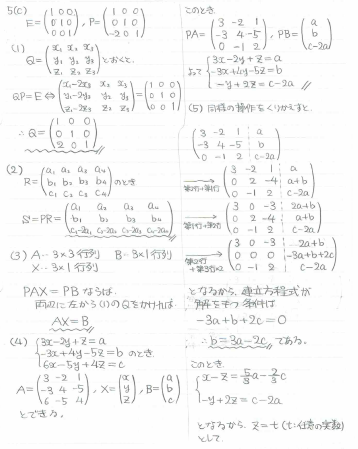 5(C)
E=(1 0 0 / 0 1 0 / 0 0 1), P=(1 0 0 / 0 1 0 / -2 0 1)
(1)
Q=(x₁ x₂ x₃ / y₁ y₂ y₃ / z₁ z₂ z₃)とおくと、
QP=E ⇔ (x₁-2x₃ x₂ x₃ / y₁-2y₃ y₂ y₃ / z₁-2z₃ z₂ z₃)=(1 0 0 / 0 1 0 / 0 0 1)
∴ Q=(1 0 0 / 0 1 0 / 2 0 1)
(2)
R=(a₁ a₂ a₃ a₄ / b₁ b₂ b₃ b₄ / c₁ c₂ c₃ c₄)のとき
S=PR=(a₁ a₂ a₃ a₄ / b₁ b₂ b₃ b₄ / c₁-2a₁ c₂-2a₂ c₃-2a₃ c₄-2a₄)
(3) A…3×3行列 B…3×1行列
X…3×1行列
PAX=PBならば
両辺に左から(1)のQをかければ
AX=B
(4) {3x-2y+z=a
-3x+4y-5z=b のとき
6x-5y+4z=c
A=(3 -2 1 / -3 4 -5 / 6 -5 4), X=(x / y / z), B=(a / b / c)
とできる。
このとき
PA=(3 -2 1 / -3 4 -5 / 0 -1 2), PB=(a / b / c-2a)
よって {3x-2y+z=a
-3x+4y-5z=b
-y+2z=c-2a
(5) 同様の操作をくりかえすと
(3 -2 1 a / -3 4 -5 b / 0 -1 2 c-2a)
(3 -2 1 a / 0 2 -4 a+b / 0 -1 2 c-2a)
(3 0 -3 2a+b / 0 2 -4 a+b / 0 -1 2 c-2a)
(3 0 -3 2a+b / 0 0 0 -3a+b+2c / 0 -1 2 c-2a)
となるから、連立方程式が
解を持つ条件は
-3a+b+2c=0
∴b=3a-2c である。
このとき
{x-z=5/3a-2/3c
-y+2z=c-2a
となるから z=t (t:任意の実数)
として